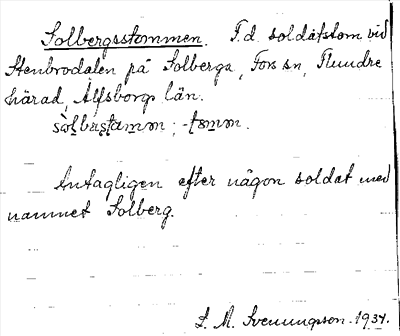 Solbergsstommen. F.d. soldatstom vid
Stenbrodalen på Solberga, Fors sn, Flundre
härad, Älfsborgs län.
Antagligen efter någon soldat med
namnet Solberg.
L. M. Svenungsson. 1934.